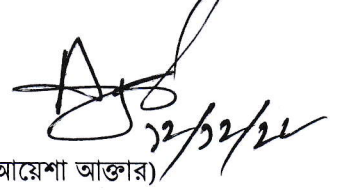 ১২/১২/২১
আয়েশা আক্তার)